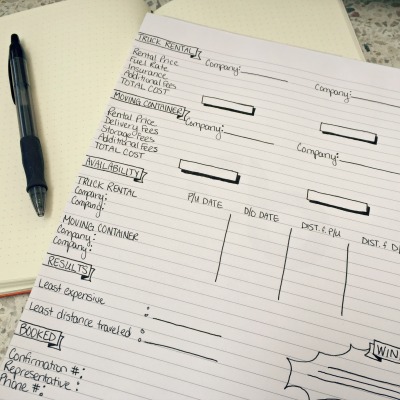 TRUCK RENTAL
Company: Company:
Rental Price
Fuel Rate
Insurance
Additional Fees
TOTAL COST
MOVING CONTAINER
Company: Company:
Rental Price
Delivery Fees
Storage Fees
Additional Fees
TOTAL COST
AVAILABILITY
P/U DATE D/O DATE DIST. f. P/U DIST. f. D
TRUCK RENTAL
Company:
Company:
MOVING CONTAINER
Company:
Company:
RESULTS
Least expensive :
Least distance traveled :
BOOKED
WIN
Confirmation #:
Representative:
Phone #: